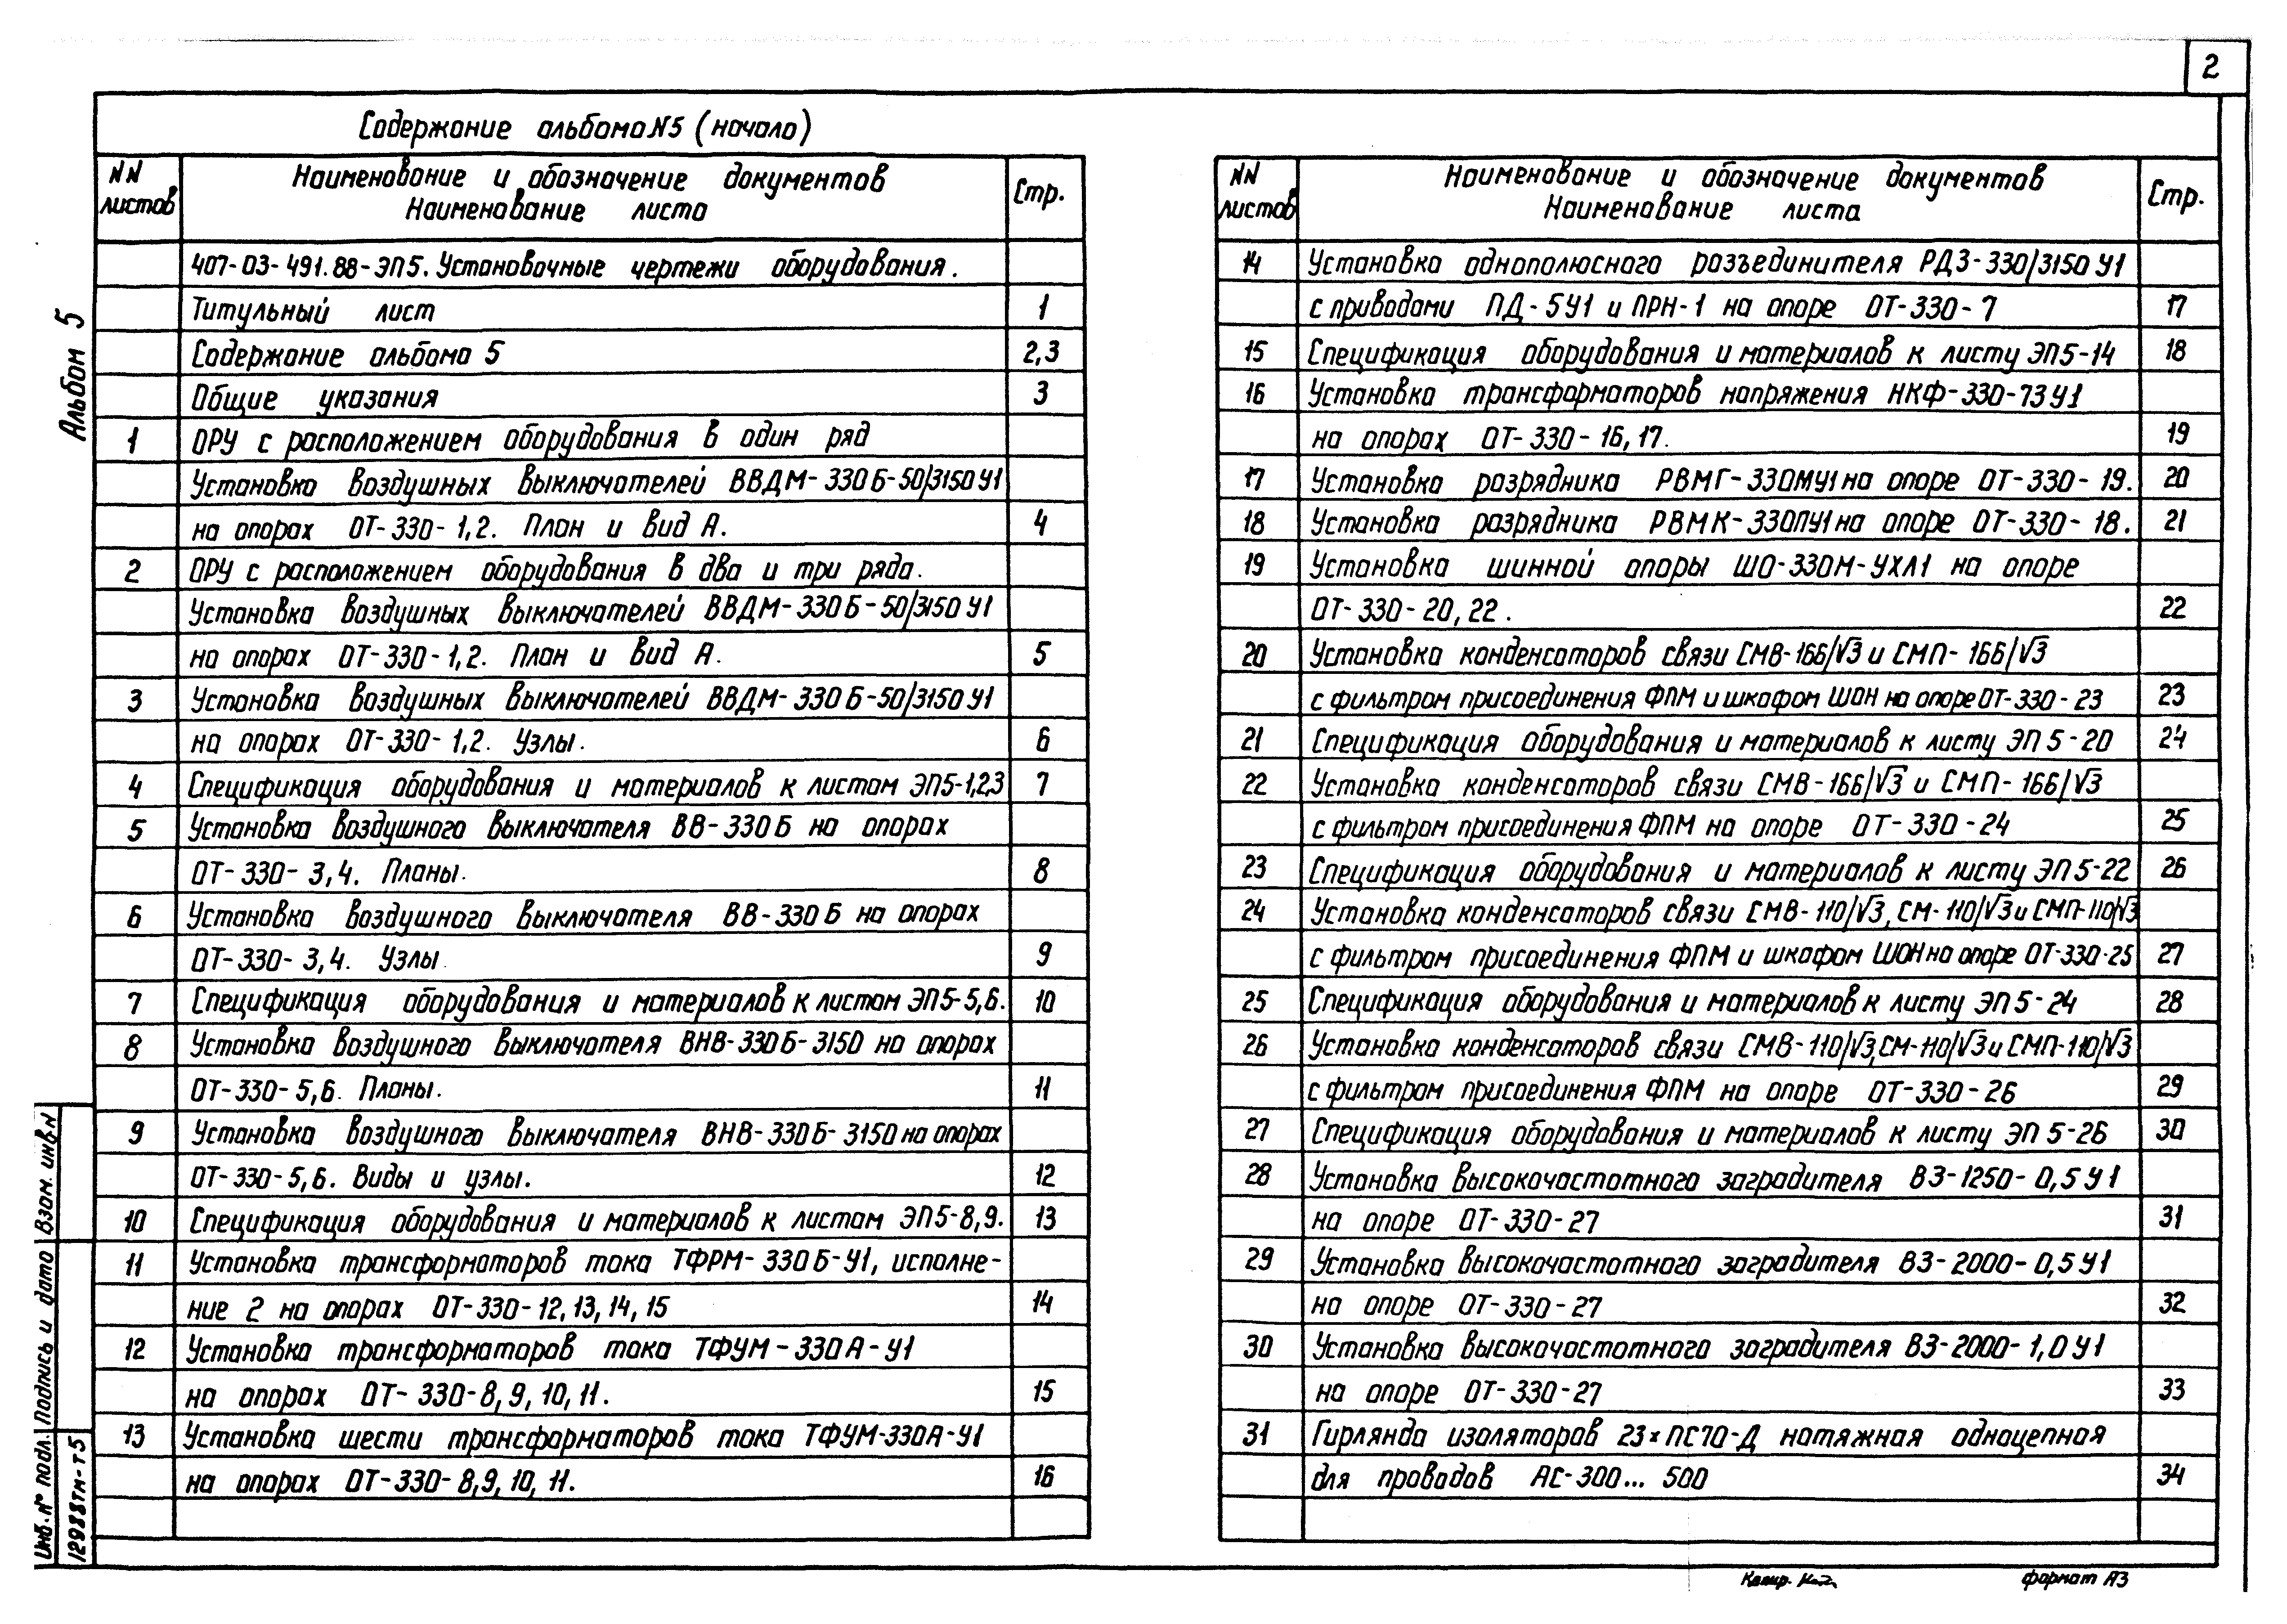 2
Содержание альбома N5 (начало)
NN листов
Наименование и обозначение документов
Наименование листа
Стр.
407-03-491.88-ЭП5. Установочные чертежи оборудования.
Титульный лист 1
Содержание альбома 5 2,3
Общие указания 3
1 ОРУ с расположением оборудования в один ряд
Установка воздушных выключателей ВВДМ-330Б-50/3150У1
на опорах ОТ-330-1,2. План и вид А. 4
2 ОРУ с расположением оборудования в два и три ряда.
Установка воздушных выключателей ВВДМ-330Б-50/3150У1
на опорах ОТ-330-1,2. План и вид А. 5
3 Установка воздушных выключателей ВВДМ-330Б-50/3150У1
на опорах ОТ-330-1,2. Узлы. 6
4 Спецификация оборудования и материалов к листам ЭП5-1,2,3 7
5 Установка воздушного выключателя ВВ-330Б на опорах
ОТ-330-3,4. Планы. 8
6 Установка воздушного выключателя ВВ-330Б на опорах
ОТ-330-3,4. Узлы. 9
7 Спецификация оборудования и материалов к листам ЭП5-5,6. 10
8 Установка воздушного выключателя ВНВ-330Б-3150 на опорах
ОТ-330-5,6. Планы. 11
9 Установка воздушного выключателя ВНВ-330Б-3150 на опорах
ОТ-330-5,6. Виды и узлы. 12
10 Спецификация оборудования и материалов к листам ЭП5-8,9. 13
11 Установка трансформаторов тока ТФРМ-330Б-У1, исполне-
ние 2 на опорах ОТ-330-12,13,14,15 14
12 Установка трансформаторов тока ТФУМ-330А-У1
на опорах ОТ-330-8,9,10,11. 15
13 Установка шести трансформаторов тока ТФУМ-330А-У1
на опорах ОТ-330-8,9,10,11. 16
NN листов
Наименование и обозначение документов
Наименование листа
Стр.
14 Установка однополюсного разъединителя РДЗ-330/3150У1
с приводами ПД-5У1 и ПРН-1 на опоре ОТ-330-7 17
15 Спецификация оборудования и материалов к листу ЭП5-14 18
16 Установка трансформаторов напряжения НКФ-330-73У1
на опорах ОТ-330-16,17. 19
17 Установка разрядника РВМГ-330МУ1 на опоре ОТ-330-19. 20
18 Установка разрядника РВМК-330ПУ1 на опоре ОТ-330-18. 21
19 Установка шинной опоры ШО-330М-УХЛ1 на опоре
ОТ-330-20,22. 22
20 Установка конденсаторов связи СМВ-166/√3 и СМП-166/√3
с фильтром присоединения ФПМ и шкафом ШОН на опоре ОТ-330-23 23
21 Спецификация оборудования и материалов к листу ЭП5-20 24
22 Установка конденсаторов связи СМВ-166/√3 и СМП-166/√3
с фильтром присоединения ФПМ на опоре ОТ-330-24 25
23 Спецификация оборудования и материалов к листу ЭП5-22 26
24 Установка конденсаторов связи СМВ-110/√3, СМ-110/√3 и СМП-110/√3
с фильтром присоединения ФПМ и шкафом ШОН на опоре ОТ-330-25 27
25 Спецификация оборудования и материалов к листу ЭП5-24 28
26 Установка конденсаторов связи СМВ-110/√3, СМ-110/√3 и СМП-110/√3
с фильтром присоединения ФПМ на опоре ОТ-330-26 29
27 Спецификация оборудования и материалов к листу ЭП5-26 30
28 Установка высокочастотного заградителя ВЗ-1250-0,5У1
на опоре ОТ-330-27 31
29 Установка высокочастотного заградителя ВЗ-2000-0,5У1
на опоре ОТ-330-27 32
30 Установка высокочастотного заградителя ВЗ-2000-1,0У1
на опоре ОТ-330-27 33
31 Гирлянда изоляторов 23×ПС70-Д натяжная одноцепная
для проводов АС-300...500 34
Альбом 5
Взам. инв N
Подпись и дата
Инв. № подл.
12988тм-т5
Копир.
формат А3